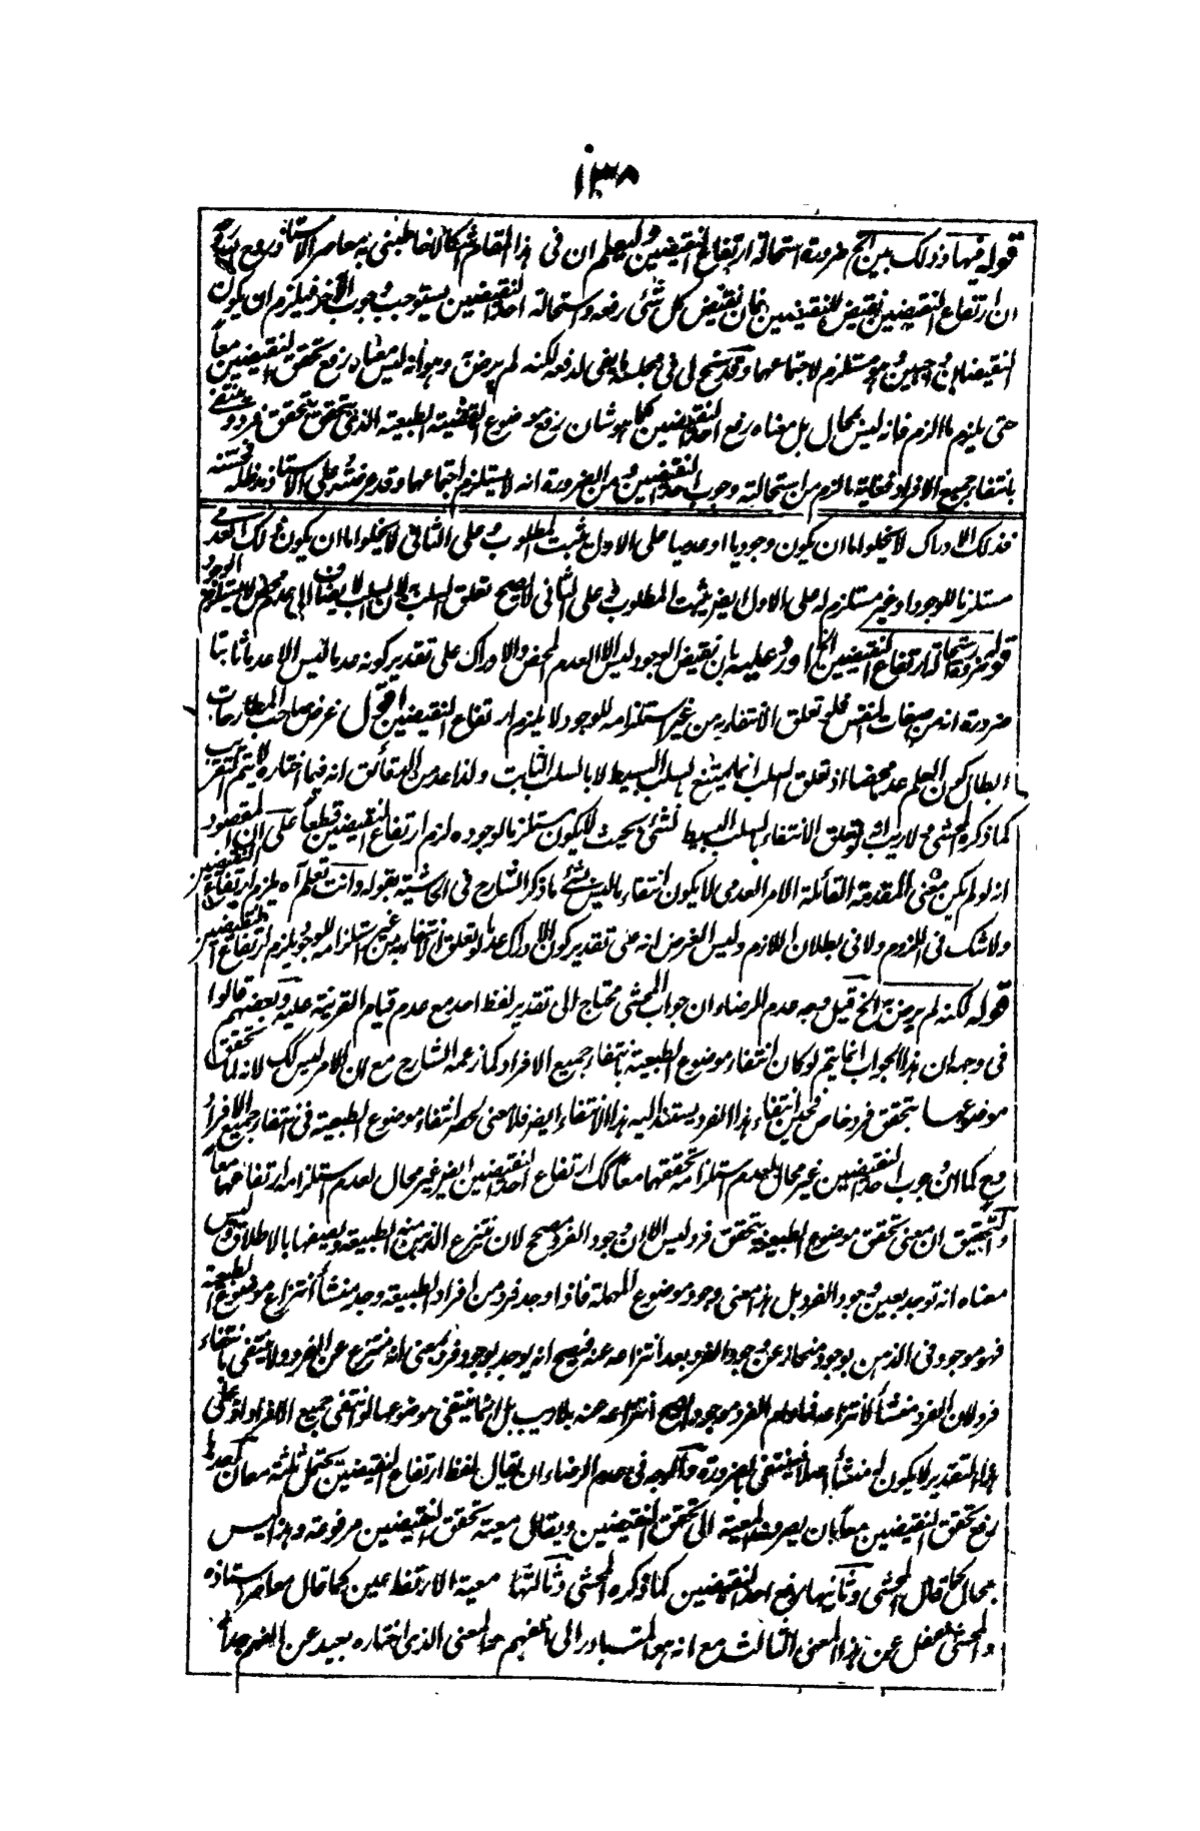 ١٣٨
قوله فيها وذلك بين الخ ضرورة استحالة ارتفاع النقيضين وليعلم ان فى هذا المقام اشكالا خاطبنى به معاصر الاستاذ وهو
ان ارتفاع النقيضين نقيض للنقيضين فان نقيض كل شئ رفعه واستحالة احد النقيضين يستوجب وجوب الآخر فيلزم ان يكون
النقيضان وجبين وهو مستلزم لاجتماعهما وقد سنح لى فى مجلسه ما يفى لدفعه لكنه لم يرض به وهو انه ليس معناه رفع تحقق النقيضين معاً
حتى يلزم ما الزم فانه ليس بمحال بل معناه رفع احد النقيضين كما هو شان رفع موضوع القضية الطبيعية الذى يتحقق بتحقق فرد وينتفى
بانتفاء جميع الافراد فغاية ما لزم من استحالته وجوب احد النقيضين ومن الضرورة انه لا يستلزم اجتماعهما وقد عرضته على الاستاذ مد ظله
فذلك الادراك لا يخلو اما ان يكون وجوديا او عدميا على الاول يثبت المطلوب وعلى الثانى لا يخلو اما ان يكون ذلك العدمى
مستلزما للوجود او غير مستلزم له على الاول ايضا يثبت المطلوب وعلى الثانى لا يصح تعلق السلب به لان السلب لا يضاف الى عدم محض لا يستلزم الوجود
قوله ضرورة استحالة ارتفاع النقيضين الخ اورد عليه بان نقيض الوجود ليس الا العدم المحض والادراك على تقدير كونه عدميا ليس الا عدما ثابتا
ضرورة انه من صفات النفس فلو تعلق الانتفاء به من غير استلزامه للوجود لا يلزم ارتفاع النقيضين اقول غرض صاحب المطارحات
ابطال كون العلم عدما محضا اذ تعلق السلب انما يمتنع بالسلب البسيط لا بالسلب الثابت ولذا عد من الدقائق انه فيما اختاره لا يتم التقريب
كما ذكره المحشى ولا ريب انه لو تعلق الانتفاء بالسلب البسيط لشئ بحيث لا يكون مستلزما لوجوده لزم ارتفاع النقيضين قطعاً على ان المقصود
انه لو لم يكن معنى المقدمة القائلة الامر العدمى لا يكون انتفاء ما ليس بشئ ما ذكر الشارح فى الحاشية بقوله وانت تعلم آه يلزم ارتفاع النقيضين
ولا شك فى اللزوم ولا فى بطلان اللازم وليس الغرض انه على تقدير كون الادراك عدميا لو تعلق الانتفاء به من غير استلزامه للوجود يلزم ارتفاع النقيضين
قوله لكنه لم يرض به الخ قيل وجه عدم الرضاء ان جواب المحشى محتاج الى تقدير لفظ احد مع عدم قيام القرينة عليه وبعضهم قالوا
فى وجهه ان هذا الجواب انما يتم لو كان انتفاء موضوع الطبيعية بانتفاء جميع الافراد كما زعمه الشارح مع ان الامر ليس كك لانه لما تحقق
موضوعها بتحقق فرد خاص فحين انتفاء هذا الفرد يستند اليه هذا الانتفاء ايضا فلا معنى لحصر انتفاء موضوع الطبيعية فى انتفاء جميع الافراد
وح كما ان وجوب احد النقيضين غير محال لعدم استلزامه تحققهما معاً كك ارتفاع احد النقيضين ايضا غير محال لعدم استلزامه ارتفاعهما معاً
والتحقيق ان معنى تحقق موضوع الطبيعية بتحقق فرد ليس الا ان وجود الفرد مصحح لان ينتزع الذهن منه الطبيعة ويصفها بالاطلاق وليس
معناه انه توجد بعين وجود الفرد بل هذا معنى وجود موضوع المهملة فاذا وجد فرد من افراد الطبيعة وجد منشأ انتزاع موضوع الطبيعية
فهو موجود فى الذهن بوجود منحاز عن وجود الفرد بعد انتزاعه عنه فيصح انه يوجد بوجود فرد بمعنى انه منتزع عن الفرد ولا ينتفى بانتفاء
فرد لان الفرد منشأ لانتزاعه فما دام الفرد موجودا صح انتزاعه عنه بلا ريب بل انما ينتفى موضوعها لو انتفى جميع الافراد اذ على
هذا التقدير لا يكون له منشأ اصلا فينتفى بالضرورة والاوجه فى عدم الرضاء ان يقال لفظ ارتفاع النقيضين يحتمل ثلثة معان احدها
رفع تحقق النقيضين معاً بان يصرف المعية الى تحقق النقيضين ويقال معية تحقق النقيضين مرفوعة وهذا ليس
بمحال كما قال المحشى وثانيها رفع احد النقيضين كما ذكره المحشى وثالثها معية الارتفاعين كما قال معاصر استاذه
والمحشى غفل عن هذا المعنى الثالث مع انه هو المتبادر الى الفهم والمعنى الذى اختاره بعيد عن الفهم جداً